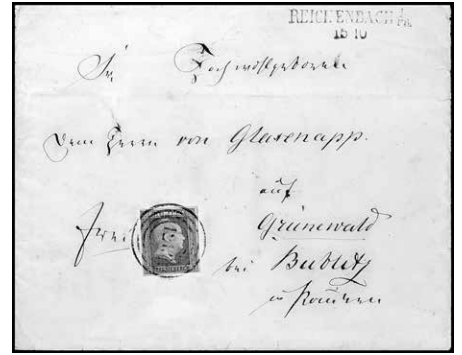 REICHENBACH i/Pr.
15 10
Sr Hochwohlgeboren
dem Herrn von Glasenapp.
auf
frei Grünewald
bei Bublitz
in